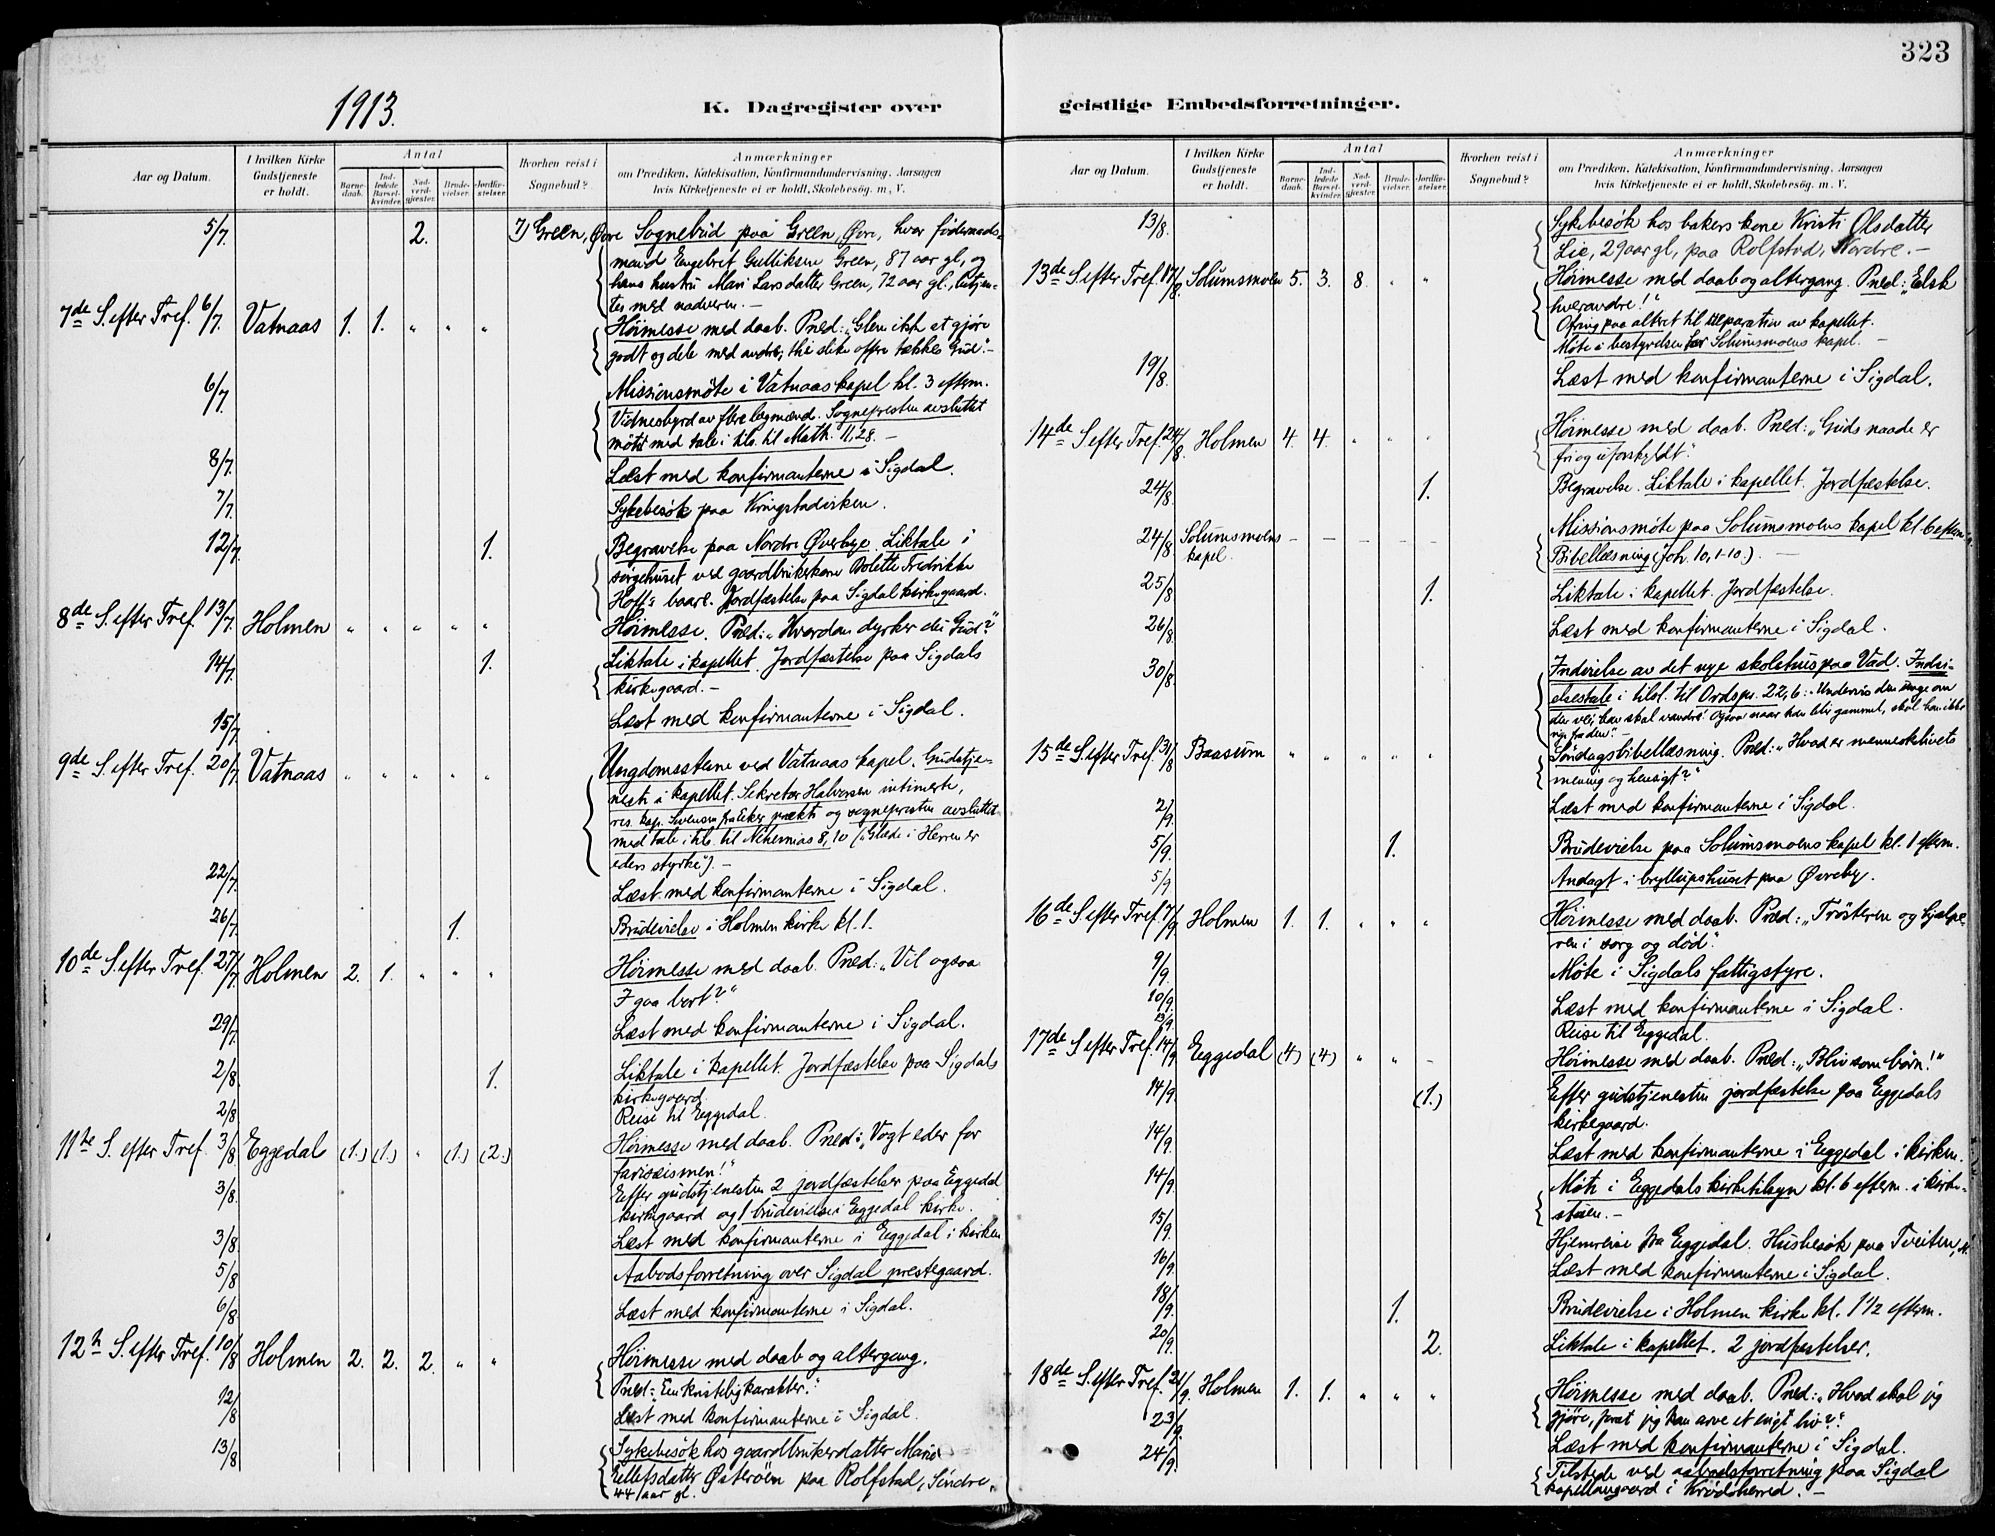 323
1913.
K. Dagregister over geistlige Embedsforretninger.
Aar og Datum.
I hvilken Kirke Gudstjeneste er holdt.
Antal
Barnedaab.
Indledede Barselkvinder.
Nadverdgjæster.
Brudevielser.
Jordfæstelser.
Hvorhen reist i Sognebud?
Anmærkninger
om Prædiken, Katekisation, Konfirmandundervisning, Aarsagen
hvis Kirketjeneste ei er holdt, Skolebesøg. m, V.
5/7. 2. 7) Green, Øvre Sognebud paa Green, Øvre, hvor föderaads-
mand Engebret Gulliksen Green, 87 aar gl, og
hans hustru Mari Larsdatter Green, 72 aar gl, betjen-
tes med nadveren. -
7de S. efter Tref. 6/7. Vatnaas 1. 1. " " " Høimesse med daab. Præd: "Glem ikke at gjøre
godt og dele med andre; thi slike offre tækkes Gud". -
6/7. Missionsmöte i Vatnaas kapel kl. 3 efterm.
Vidnesbyrd av flere lægmænd. Sognepresten avsluttet
mötet med tale i tils. til Math. 11,28. -
8/7. Læst med konfirmanterne i Sigdal.
7/7. Sykebesök paa Kringstadviken.
12/7. 1. Begravelse paa Nordre Øverbye. Liktale i
sörgehuset ved gaardbrukerkone Bolette Fredrikke
Hoff's baare. Jordfæstelse paa Sigdal kirkegaard.
8de S. efter Tref. 13/7. Holmen " " " " " Høimesse. Præd: "Hvordan dyrker du Gud?"
14/7. 1. Liktale i kapellet. Jordfæstelse paa Sigdals
kirkegaard. -
15/7. Læst med konfirmanterne i Sigdal.
9de S. efter Tref. 20/7. Vatnaas " " " " " Ungdomsstevne ved Vatnaas kapel. Gudstje-
neste i kapellet. Sekretær Halvorsen intimerte,
res. kap. Svensen fra Eiker prækte og sognepresten avsluttet
med tale i tils. til Nehemias 8, 10 ("Glæde i Herren er
eders styrke"). -
22/7. Læst med konfirmanterne i Sigdal.
26/7. 1. Brudevielse i Holmen kirke kl. 1.
10de S. efter Tref. 27/7. Holmen 2. 1. " " " Høimesse med daab. Præd: "Vil ogsaa
I gaa bort?"
29/7. Læst med konfirmanterne i Sigdal.
2/8. 1. Liktale i kapellet. Jordfæstelse paa Sigdals
kirkegaard.
2/8. Reise til Eggedal.
11te S. efter Tref. 3/8. Eggedal (1.) (1.) " (1.) (2.) Høimesse med daab. Præd: "Vogt eder for
farisæismen!"
3/8. Efter gudstjenesten 2 jordfæstelser paa Eggedal
kirkegaard og 1 brudevielse i Eggedal kirke.
3/8. Læst med konfirmanterne i Eggedal i kirken
5/8. Aabodsforretning over Sigdal prestegaard.
6/8 Læst med konfirmanterne i Sigdal.
12te S. efter Tref. 10/8 Holmen 2. 2. 2 " " Høimesse med daab og altergang.
Præd: "En kristelig karakter."
12/8 Læst med konfirmanterne i Sigdal.
13/8 Sykebesök hos gaardbrukerdatter Marie
Ellefsdatter Østerøen paa Rolfstad, Sindre,
44 aar gl.
Aar og Datum.
I hvilken Kirke Gudstjeneste er holdt.
Antal
Barnedaab.
Indledede Barselkvinder.
Nadverdgjæster.
Brudevielser.
Jordfæstelser.
Hvorhen reist i Sognebud?
Anmærkninger
om Prædiken, Katekisation, Konfirmandundervisning, Aarsagen
hvis Kirketjeneste ei er holdt, Skolebesøg. m. V.
13/8. Sykebesök hos bakers kone Kristi Olsdatter
Lie, 29 aar gl, paa Rolfstad, Nordre. -
13de S. efter Tref. 17/8. Solumsmoen 5. 3. 8. " " Høimesse med daab og altergang. Præd: "Elsk
hverandre!"
Ofring paa altret til reparation av kapellet.
Möte i bestyrelsen for Solumsmoens kapel. -
19/8. Læst med konfirmanterne i Sigdal.
14de S. efter Tref. 24/8. Holmen 4. 4. " " " Høimesse med daab. Præd: "Guds naade er
fri og uforskyldt".
24/8. 1. Begravelse. Liktale i kapellet. Jordfæstelse.
24/8. Solumsmoens kapel. - - - - - Missionsmöte paa Solumsmoens kapel kl. 6 efterm.
Bibellæsning (Joh. 10, 1-10.) -
25/8 1. Liktale i kapellet. Jordfæstelse.
26/8. Læst med konfirmanterne i Sigdal.
30/8. Indvielse av det nye skolehus paa Vad. Indvi-
elsestale i tilsl. til Ordspr. 22, 6: "Undervis den unge om
den vei, han skal vandre! Ogsaa naar han blir gammel, skal han ikke
vige fra den". -
15de S. efter Tref. 31/8 Baasum " " " " " Søndagsbibellæsning. Præd: "Hvad er menneskelivets
mening og hensigt?"
2/9. Læst med konfirmanterne i Sigdal.
5/9. 1. Brudevielse paa Solumsmoens kapel kl. 1 efterm.
5/9 Andagt i bryllupshuset paa Øvreby.
16de S. efter Tref. 7/9. Holmen 1. 1. " " " Høimesse med daab. Præd: "Trösteren og hjælpe-
ren i sorg og död".
9/9. Möte i Sigdals fattigstyre.
10/9. Læst med konfirmanterne i Sigdal.
13/9. Reise til Eggedal.
17de S. efter Tref. 14/9 Eggedal (4) (4) " " - Høimesse med daab. Præd: "Bliv som börn!"
14/9. (1.) Efter gudstjenesten jordfæstelse paa Eggedals
kirkegaard.
14/9. Læst med konfirmanterne i Eggedal i kirken.
14/9. Möte i Eggedals kirketilsyn kl. 6 efterm. i kirke-
stuen. -
15/9. Hjemreise fra Eggedal. Husbesök paa Tveiten,
16/9. Læst med konfirmanterne i Sigdal.
18/9. 1. Brudevielse i Holmen kirke kl. 1 1/2 efterm.
20/9. 2. Liktale i kapellet. 2 jordfæstelser.
18de S. efter Tref. 21/9. Holmen 1. 1. " " " Høimesse med daab. Præd: "Hvad skal jeg
gjøre, forat jeg kan arve et evigt liv?"
23/9. Læst med konfirmanterne i Sigdal.
24/9. Tilstede ved aabodsforretning paa Sigdal
kapellangaard i Krödsherred. -